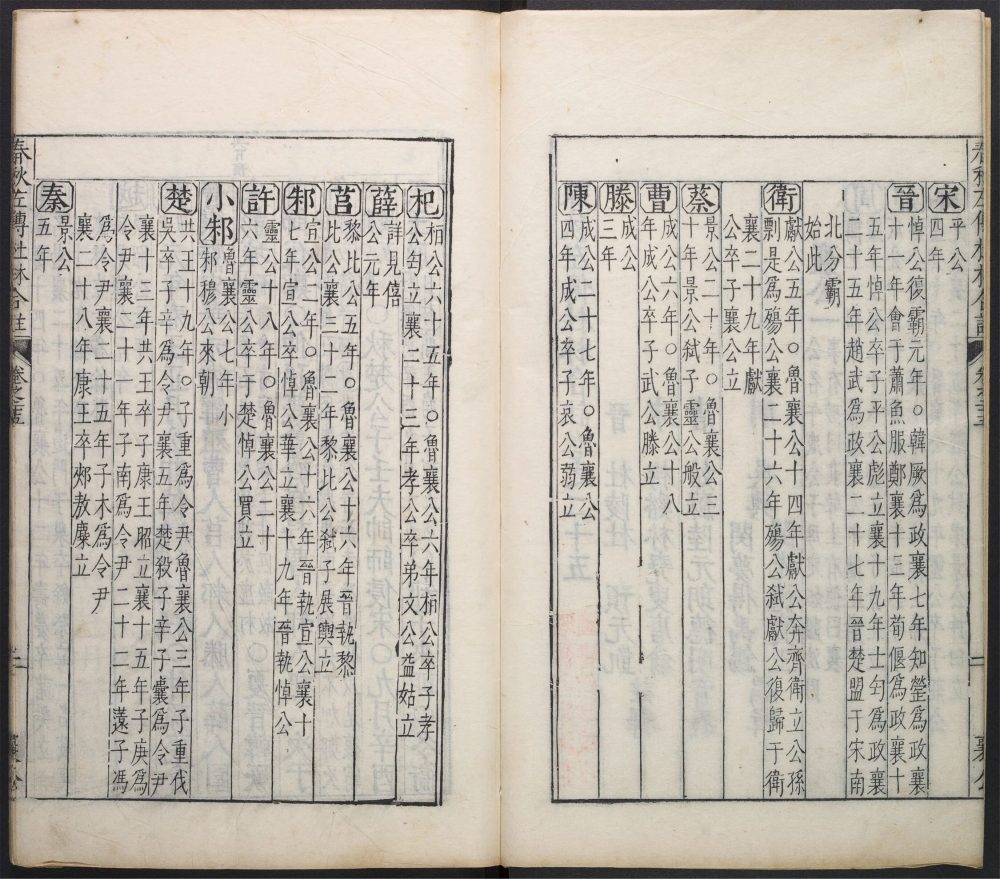 宋平公
四年
晉悼公復霸元年○韓厥為政襄七年知罃為政襄
十一年會于蕭魚服鄭襄十三年荀偃為政襄十
五年悼公卒子平公彪立襄十九年士匄為政襄
二十五年趙武為政襄二十七年晉楚盟于宋南
北分霸
始此
衛獻公五年○魯襄公十四年獻公奔齊衛立公孫
剽是為殤公襄二十六年殤公弑獻公復歸于衛
襄二十九年獻
公卒子襄公立
蔡景公二十年○魯襄公三
十年景公弑子靈公般立
曹成公六年○魯襄公十八
年成公卒子武公滕立
滕成公
三年
陳成公二十七年○魯襄公
四年成公卒子哀公弱立
杞桓公六十五年○魯襄公六年桓公卒子孝
公匄立襄二十三年孝公卒弟文公益姑立
薛詳見僖
公元年
莒黎比公五年○魯襄公十六年晉執黎
比公襄三十一年黎比公弑子展輿立
邾宣公二年○魯襄公十六年晉執宣公襄十
七年宣公卒悼公華立襄十九年晉執悼公
許靈公十八年○魯襄公二十
六年靈公卒于楚悼公買立
小邾魯襄公七年小
邾穆公來朝
楚共王十九年○子重為令尹魯襄公三年子重伐
吳卒子辛為令尹襄五年楚殺子辛子囊為令尹
襄十三年共王卒子康王昭立襄十五年子庚為
令尹襄二十一年子南為令尹二十二年薳子馮
為令尹襄二十五年子木為令尹
襄二十八年康王卒郟敖麇立
秦景公
五年
春秋左傳杜林合註